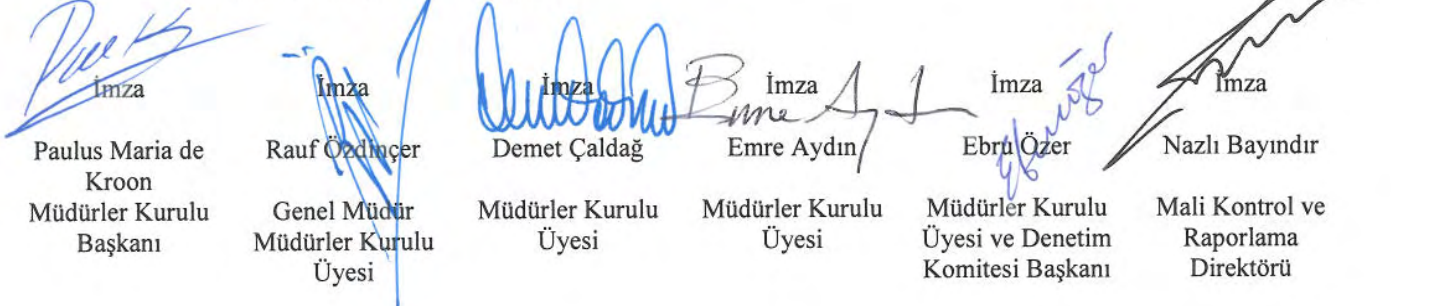 İmza
Paulus Maria de
Kroon
Müdürler Kurulu
Başkanı
İmza
Rauf Özdinçer
Genel Müdür
Müdürler Kurulu
Üyesi
İmza
Demet Çaldağ
Müdürler Kurulu
Üyesi
İmza
Emre Aydın
Müdürler Kurulu
Üyesi
İmza
Ebru Özer
Müdürler Kurulu
Üyesi ve Denetim
Komitesi Başkanı
İmza
Nazlı Bayındır
Mali Kontrol ve
Raporlama
Direktörü